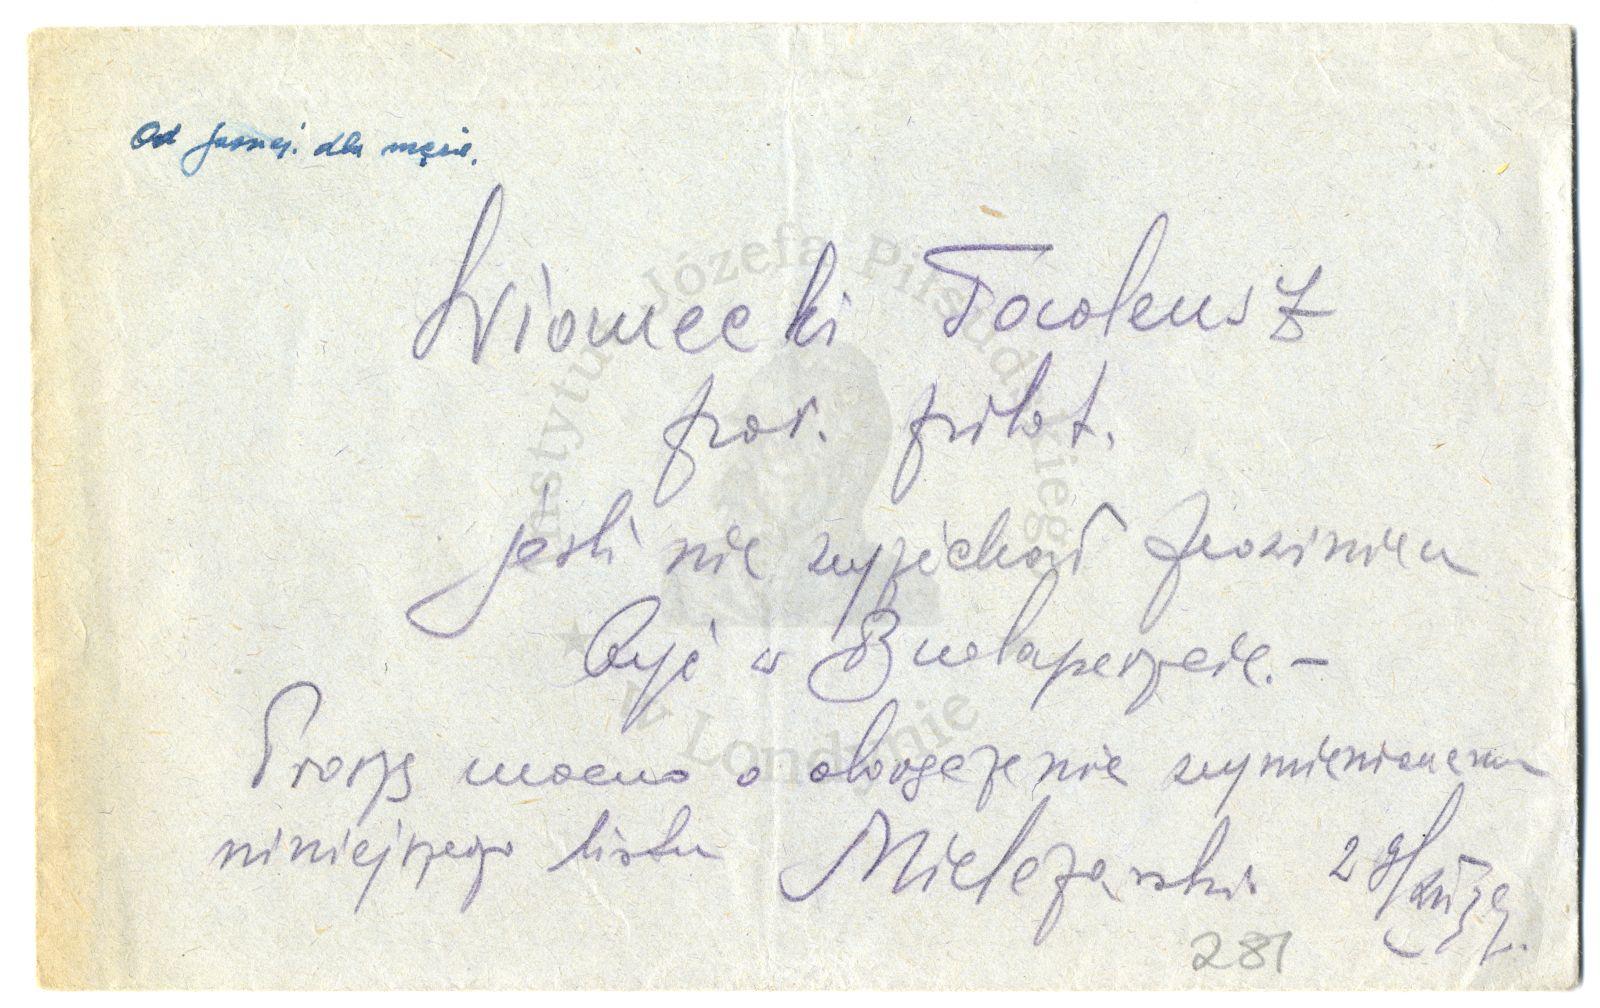 Od Jasnej. dla męża.
Wioniecki Tadeusz
por. pilot.
jeśli nie wyjechał powinien
być w Budapeszcie.-
Proszę mocno o doręczenie wymienionemu
niniejszego listu Mielczarski 29/
281
Instytut Józefa Piłsudskiego
w Londynie